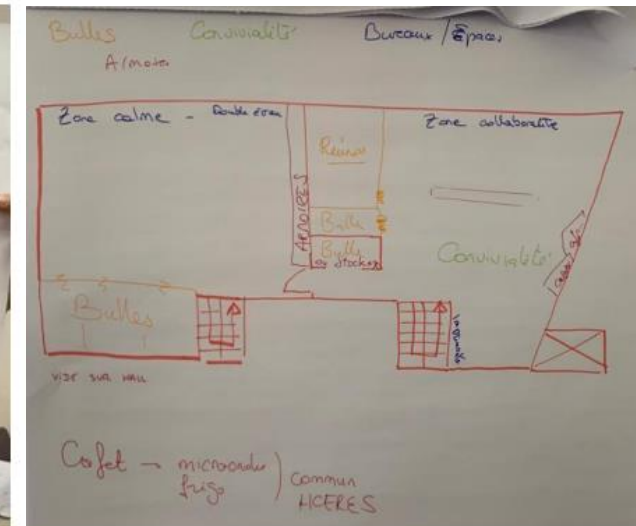 Bulles Convivialité Bureaux / Espaces
Armoires
Zone calme - Double écran
Zone collaborative
Réunion
ARMOIRES
Bulle
Bulle
ou stockage
Convivialité
Bulles
VIDE SUR HALL
Cafet → microondes
frigo
commun
HCERES